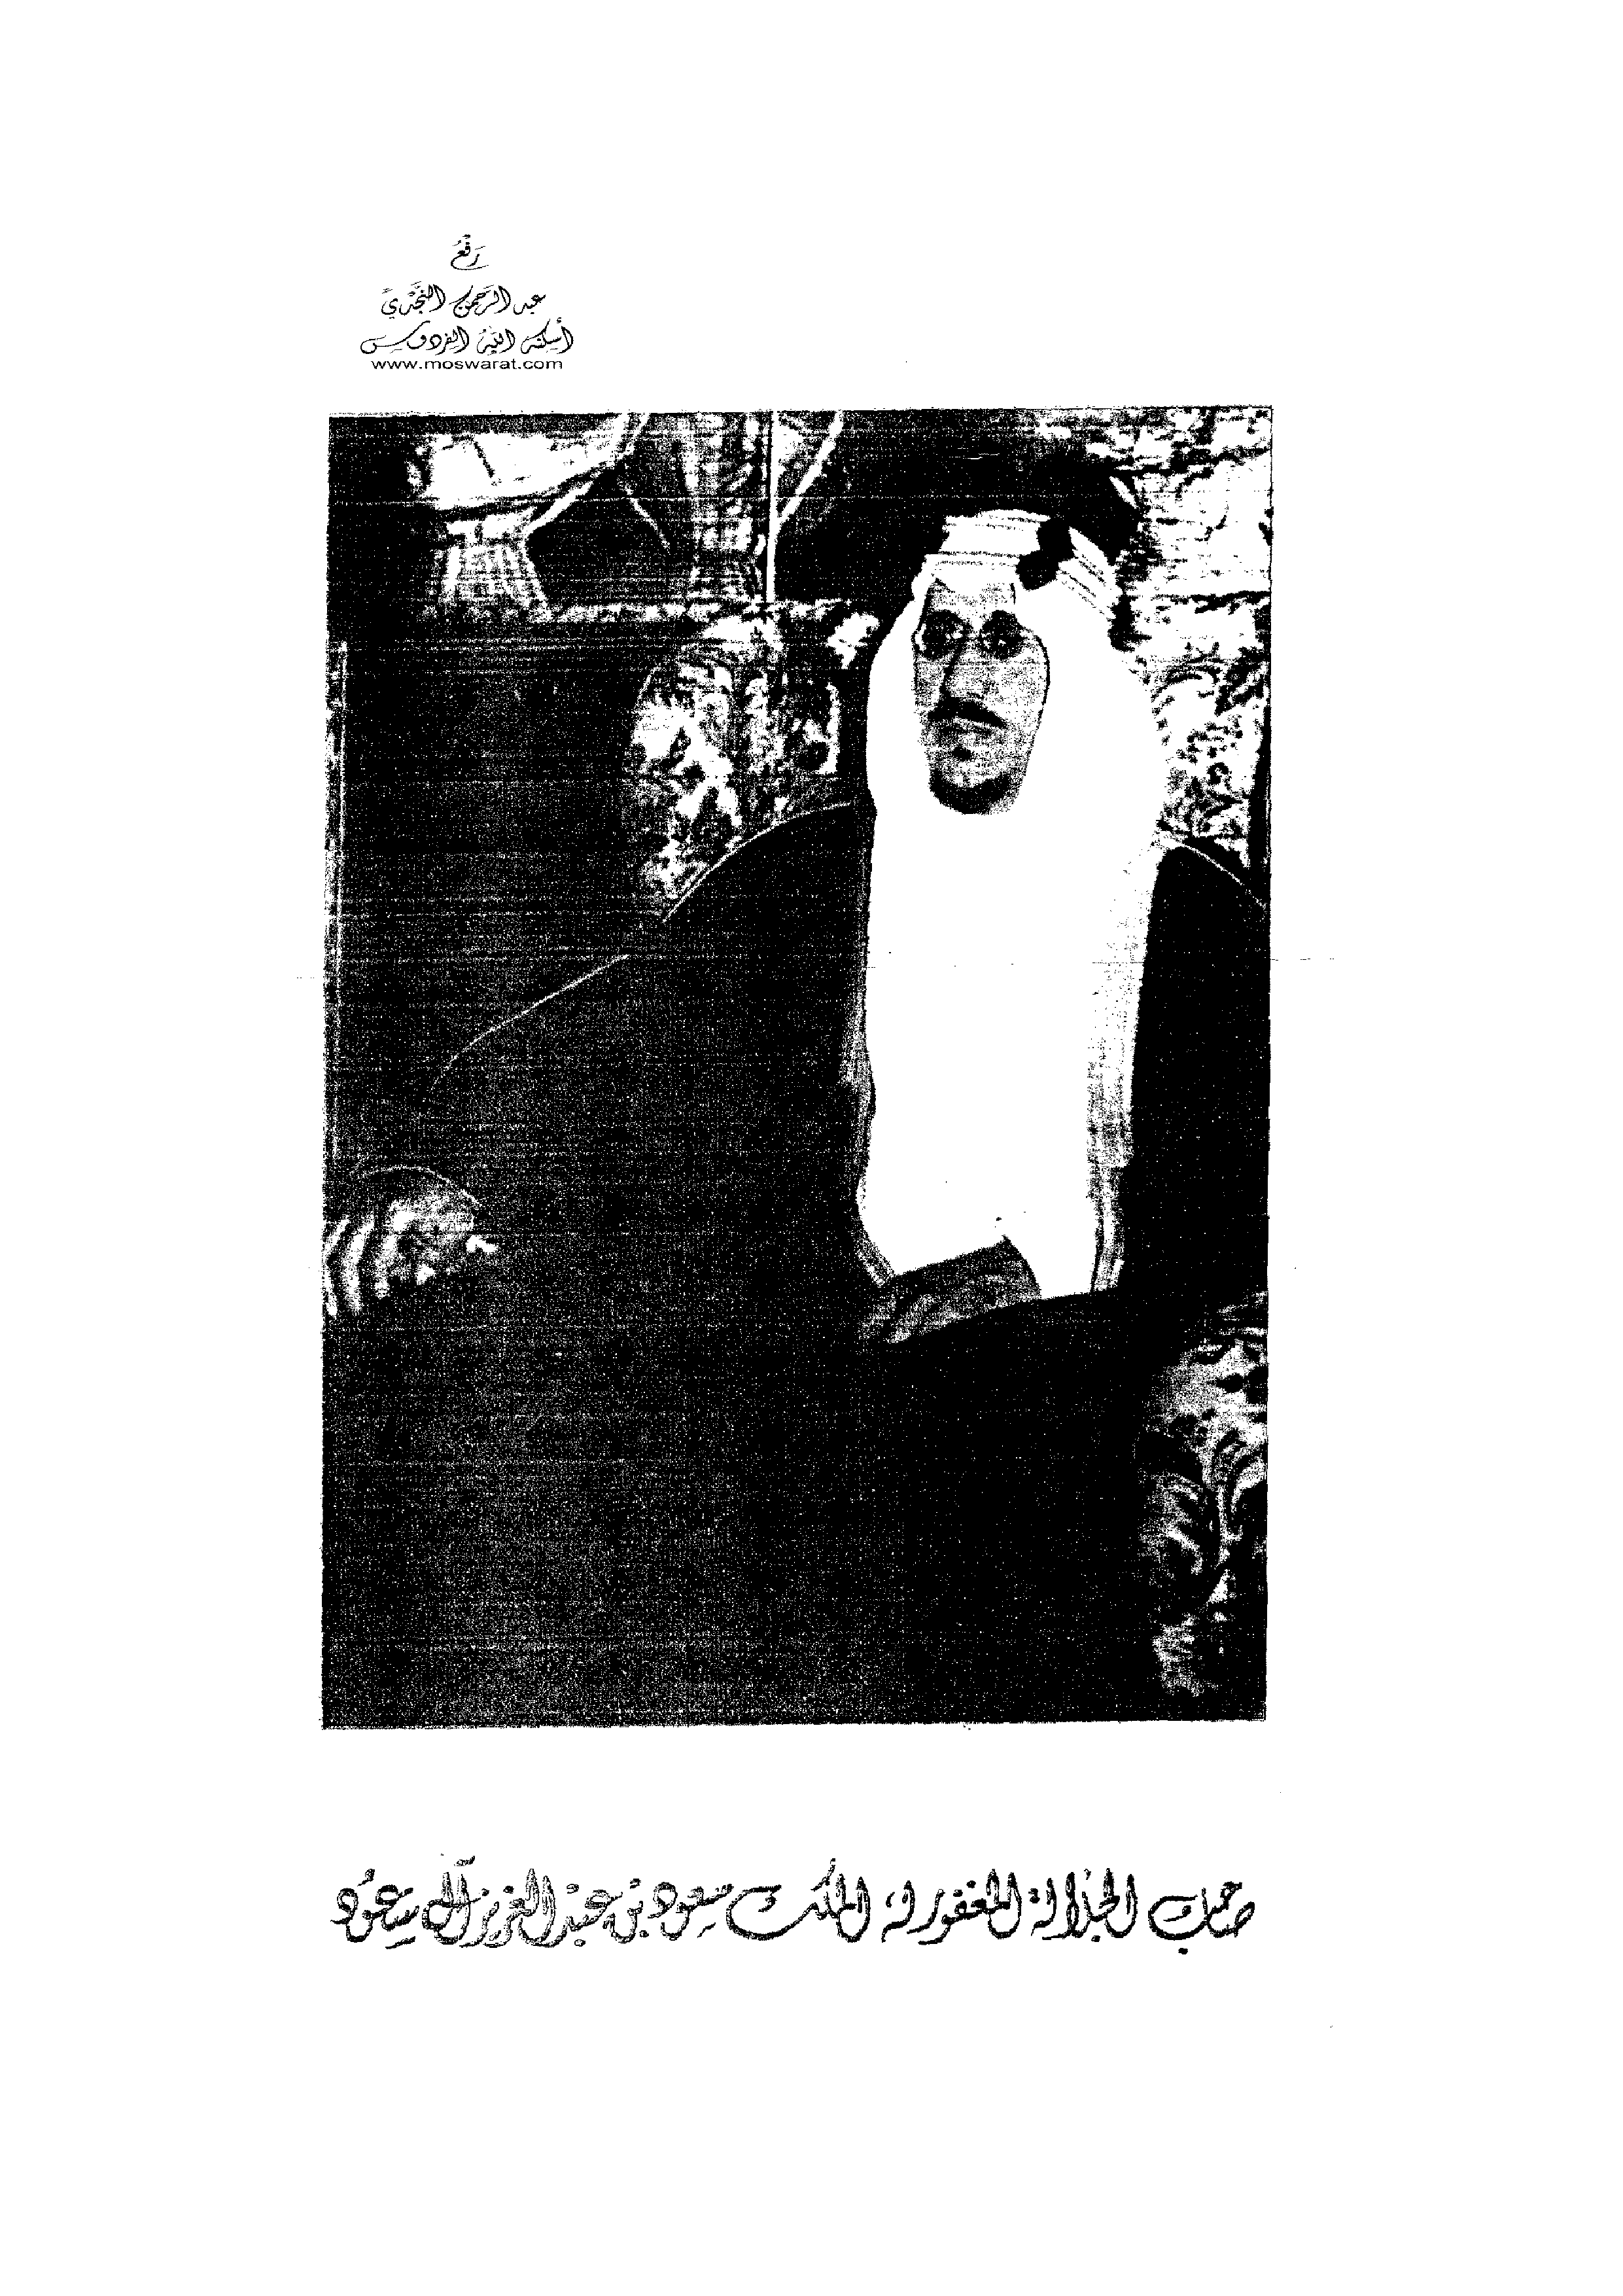 رَفْعُ
عبد الرحمن النجدي
أسكنه الله الفردوس
www.moswarat.com
صاحب الجلالة المغفور له الملك سعود بن عبد العزيز آل سعود